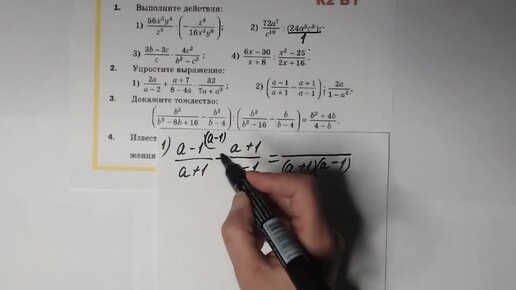 К2 В1
1. Выполните действия:
1) 56x³y⁴/z⁵ · (−z⁴/16x²y⁶); 2) 72a⁷/c¹⁰ : (24a³c⁸);
1
3) 3b − 3c/c · 4c²/b² − c²; 4) 6x − 30/x + 8 : x² − 25/2x + 16.
2. Упростите выражение:
1) 2a/a − 2 + a + 7/8 − 4a · 32/7a + a²; 2) (a − 1/a + 1 − a + 1/a − 1) : 2a/1 − a².
3. Докажите тождество:
(b³/b² − 8b + 16 − b²/b − 4) : (b²/b² − 16 − b/b − 4) = b² + 4b/4 − b.
4. Извест
жения
1) a−1 (a−1)/a+1 − a+1/−1 = /(a+1)(a−1)